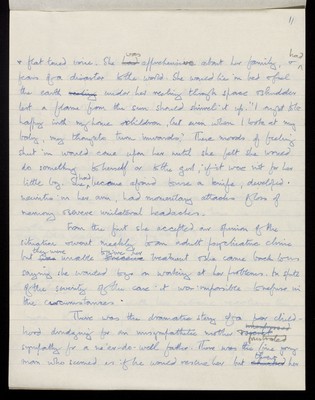 11
& flat toned voice. She was apprehensive about her family, & had
fears for a disaster to the world. She would lie in bed & feel
the earth under her reeling through space & shudder
lest a flame from the sun should shrivel it up. "I ought to be
happy with my home & children, but even when I look at my
baby, my thoughts turn inwards." These moods of feeling
shut in would come upon her until she felt she would
do something to herself or to the girl, if it was not for her
little boy. She had become afraid to use a knife, developed
neuritis in her arm, had momentary attacks of loss of
memory & severe unilateral headaches.
From the first she accepted our opinion of the
situation & went weekly to an adult psychiatric clinic
but they were unable treatment & she came back to us
saying she wanted to go on working at her problems. In spite
of the severity of the case it was impossible to refuse in
the circumstances.
There was the dramatic story of a poor child-
hood drudging for an unsympathetic mother frustrated
sympathy for a ne'er-do-well father. There was the fine young
man who seemed as if he would rescue her but her